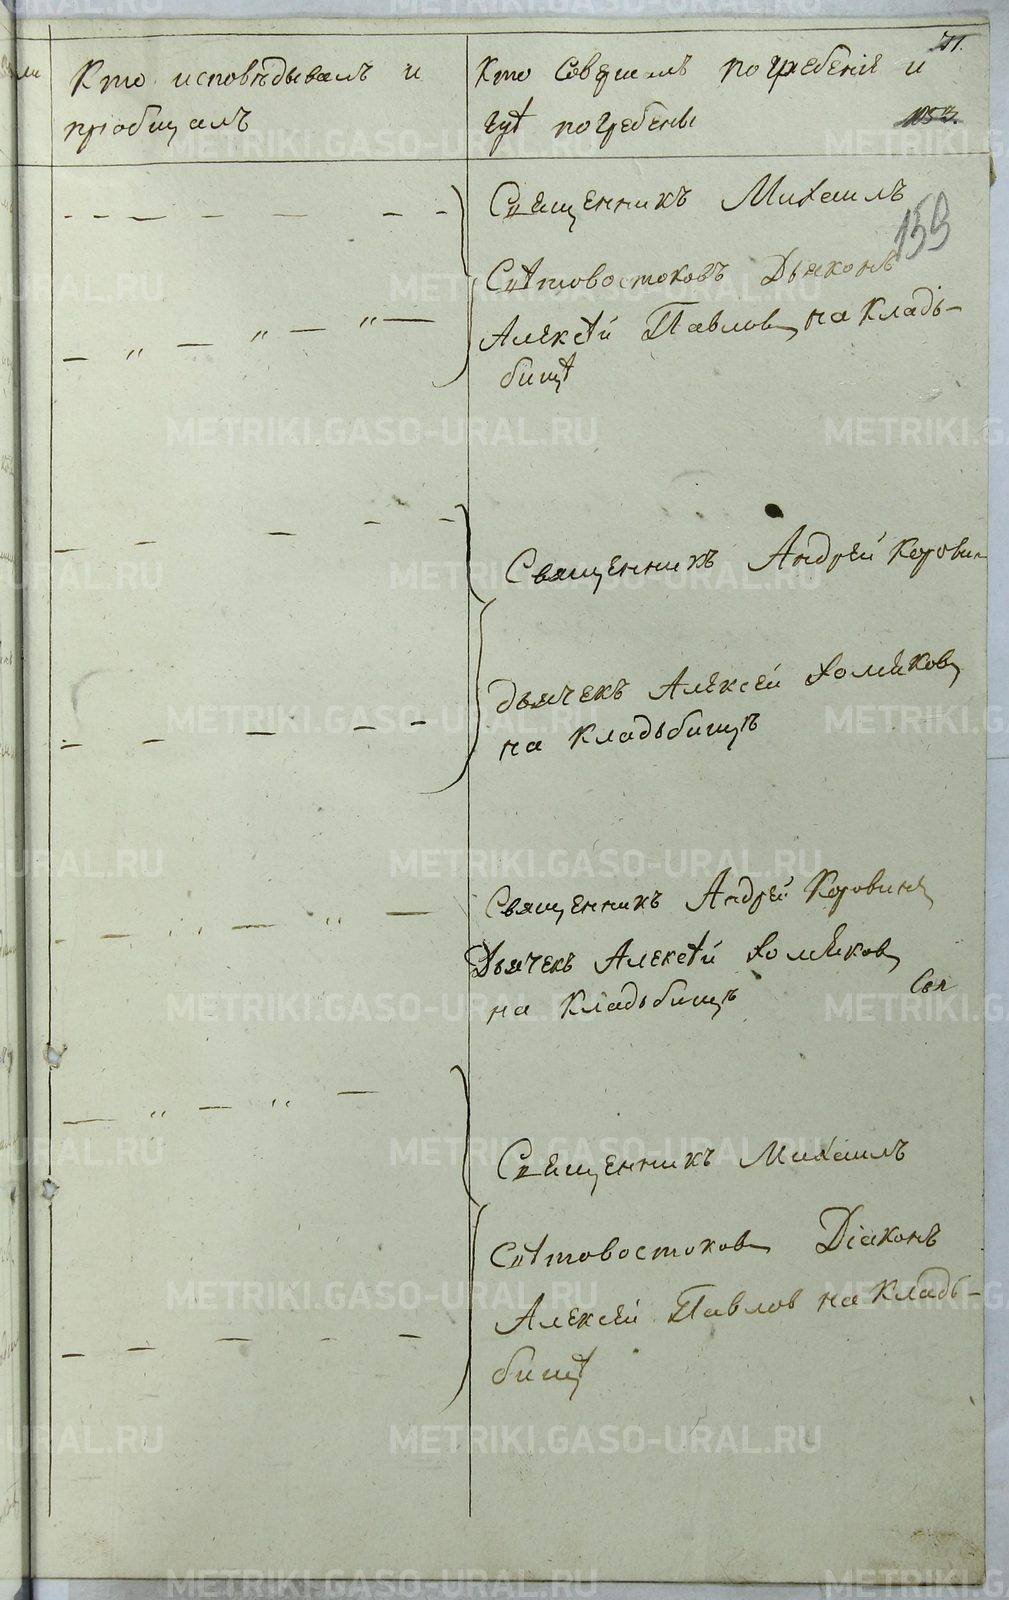 71.
Кто исповѣдывалъ и
пріобщалъ
Кто совершалъ погребеніе и
гдѣ погребены
153.
159
Священникъ Михаилъ
Свѣтовостоковъ Дьяконъ
Алексѣй Павловъ на кладь-
бищѣ
Священникъ Андрей Коровин
дьячекъ Алексей Хомяковъ
на кладьбищѣ
Священникъ Андрей Коровинъ
Дьячекъ Алексѣй Хомяковъ
на кладьбищѣ
Свя
Священникъ Михаилъ
Свѣтовостоковъ Діаконъ
Алексей Павлов на кладь-
бищѣ
METRIKI.GASO-URAL.RU